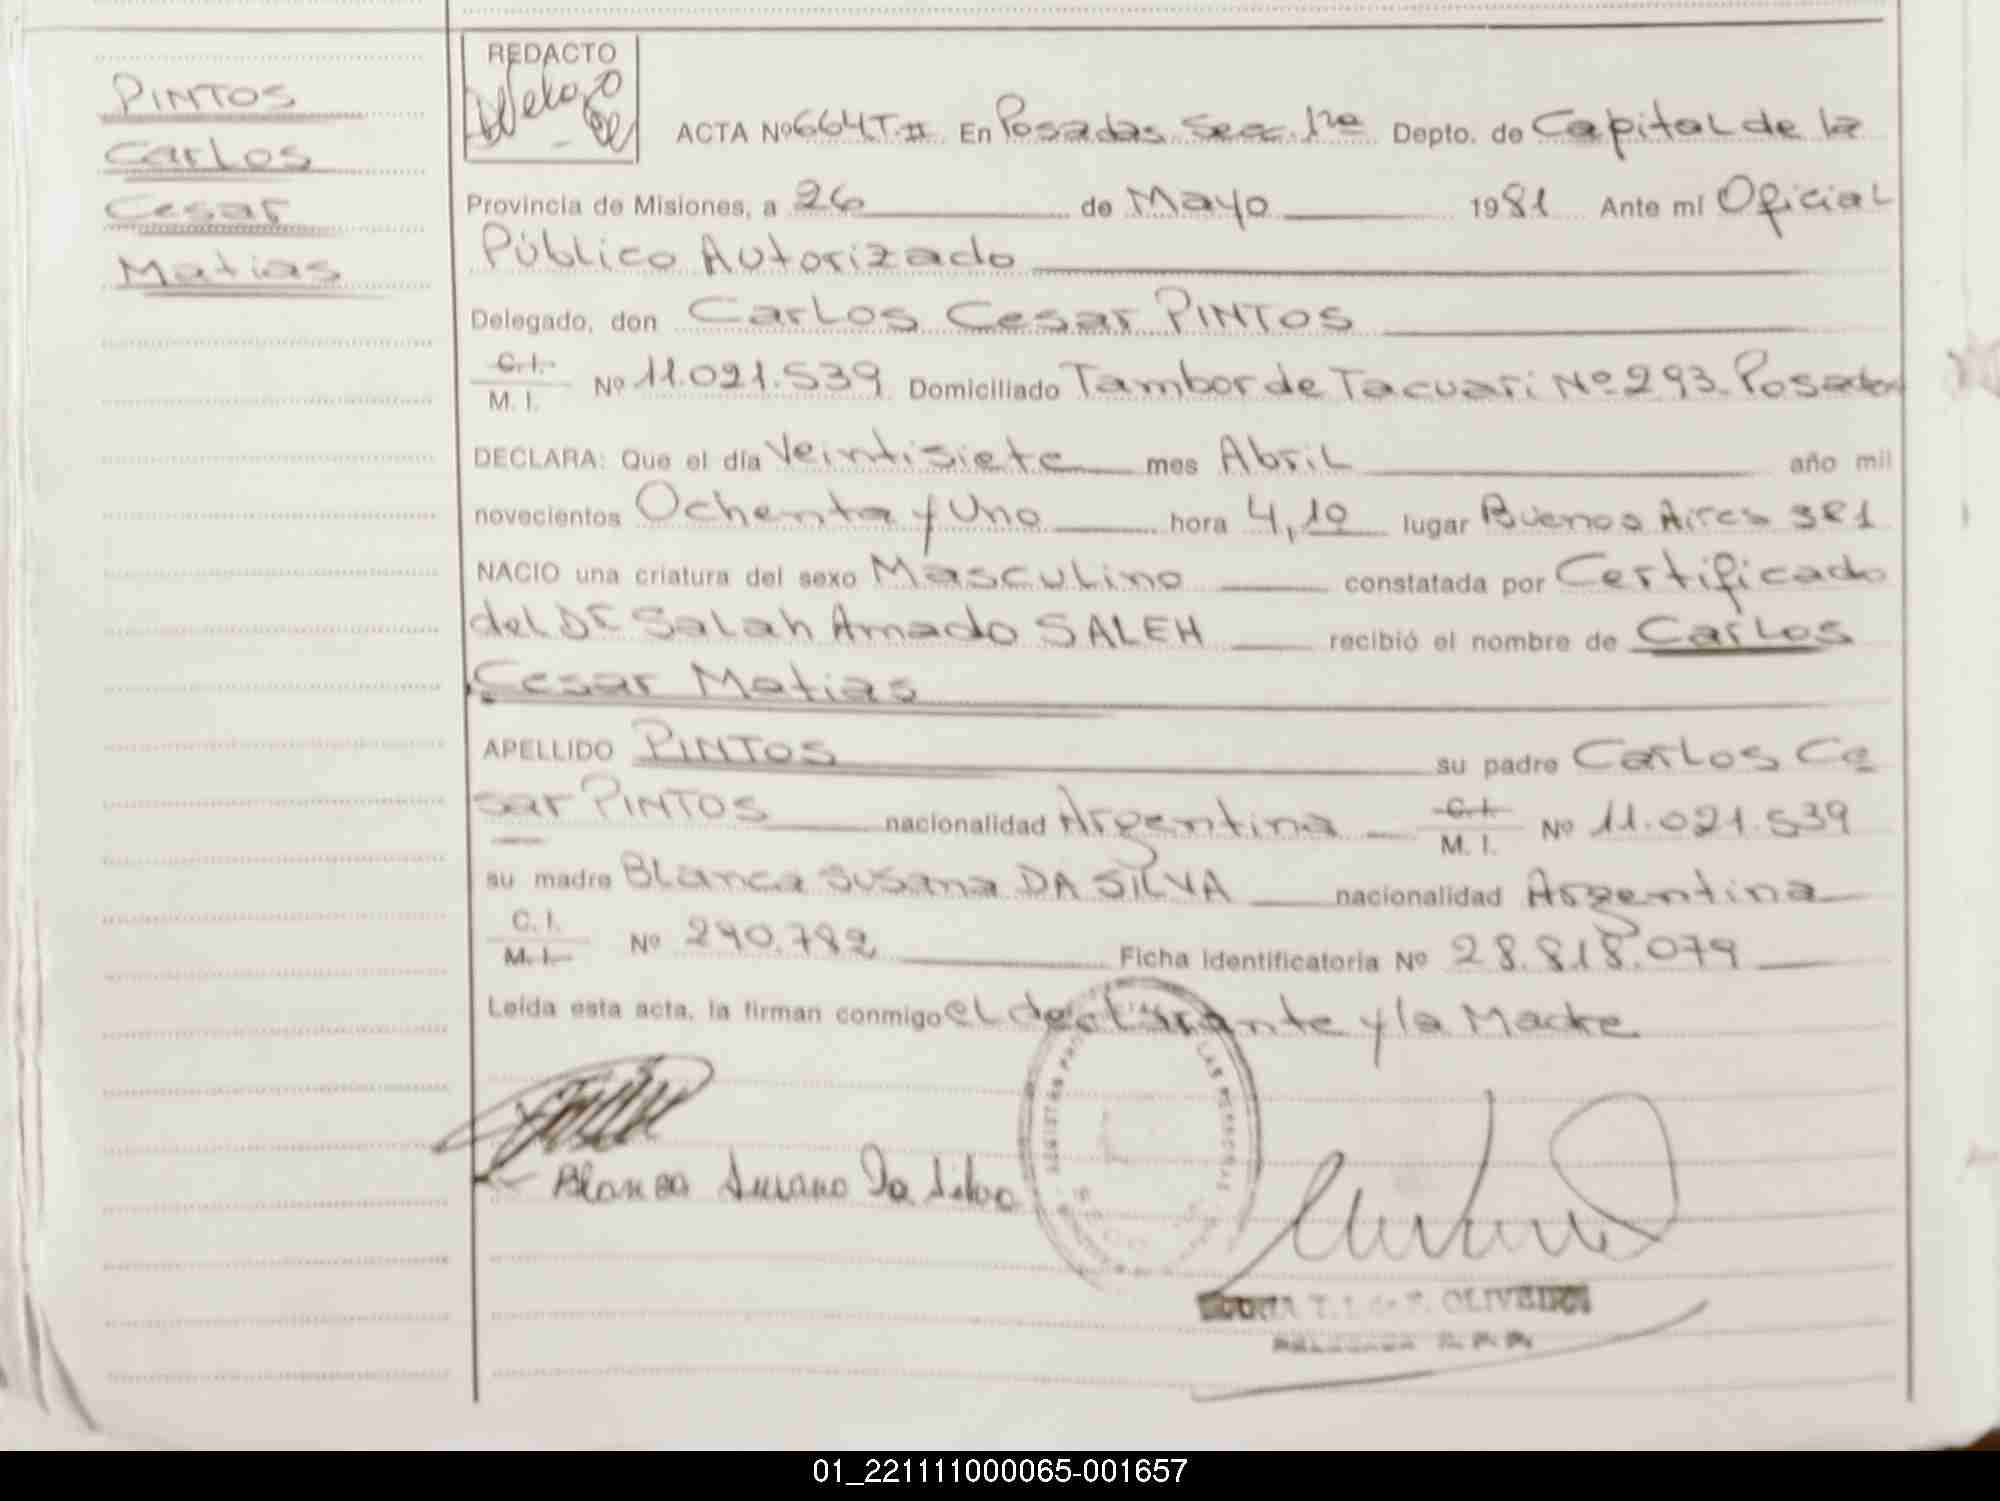 PINTOS
Carlos
Cesar
Matias
REDACTO
ACTA Nº 664 T. II En Posadas Secc. 1ra Depto. de Capital de la
Provincia de Misiones, a 26 de Mayo 1981 Ante mí Oficial
Público Autorizado
Delegado, don Carlos Cesar PINTOS
C.I. / M. I. Nº 11.021.539 Domiciliado Tambor de Tacuari Nº 293. Posadas
DECLARA: Que el día Veintisiete mes Abril año mil
novecientos Ochenta y Uno hora 4,10 lugar Buenos Aires 381
NACIO una criatura del sexo Masculino constatada por Certificado
del Dr Salah Amado SALEH recibió el nombre de Carlos
Cesar Matias
APELLIDO PINTOS su padre Carlos Ce
sar PINTOS nacionalidad Argentina C.I. / M. I. Nº 11.021.539
su madre Blanca Susana DA SILVA nacionalidad Argentina
C. I. / M. I. Nº 290.782 Ficha identificatoria Nº 28.818.079
Leída esta acta, la firman conmigo el declarante y la Madre
Blanca Susana Da Silva
LAS PERSONAS
T. OLIVEIRA
DELEGADA
01_221111000065-001657